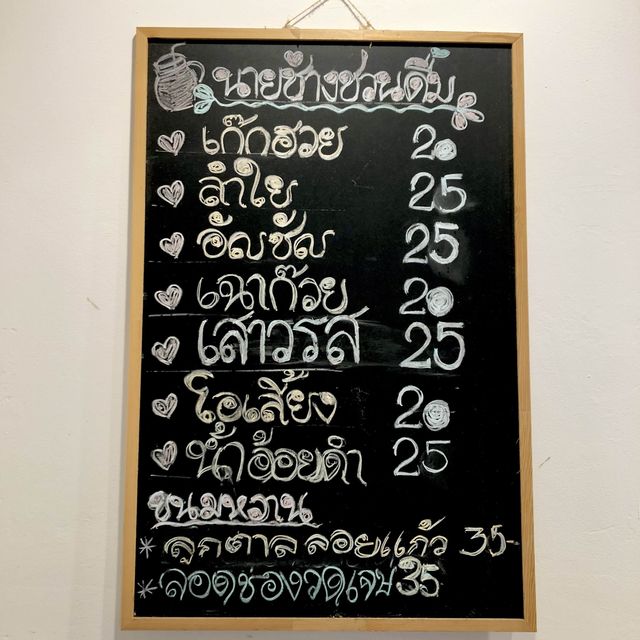 นายช่างชวนดื่ม
เก๊กฮวย 20
ลำใย 25
อัญชัญ 25
เฉาก๊วย 20
เสาวรส 25
โอเลี้ยง 20
น้ำอ้อยดำ 25
ขนมหวาน
* ลูกตาลลอยแก้ว 35-
* ลอดช่องวัดเจษ 35